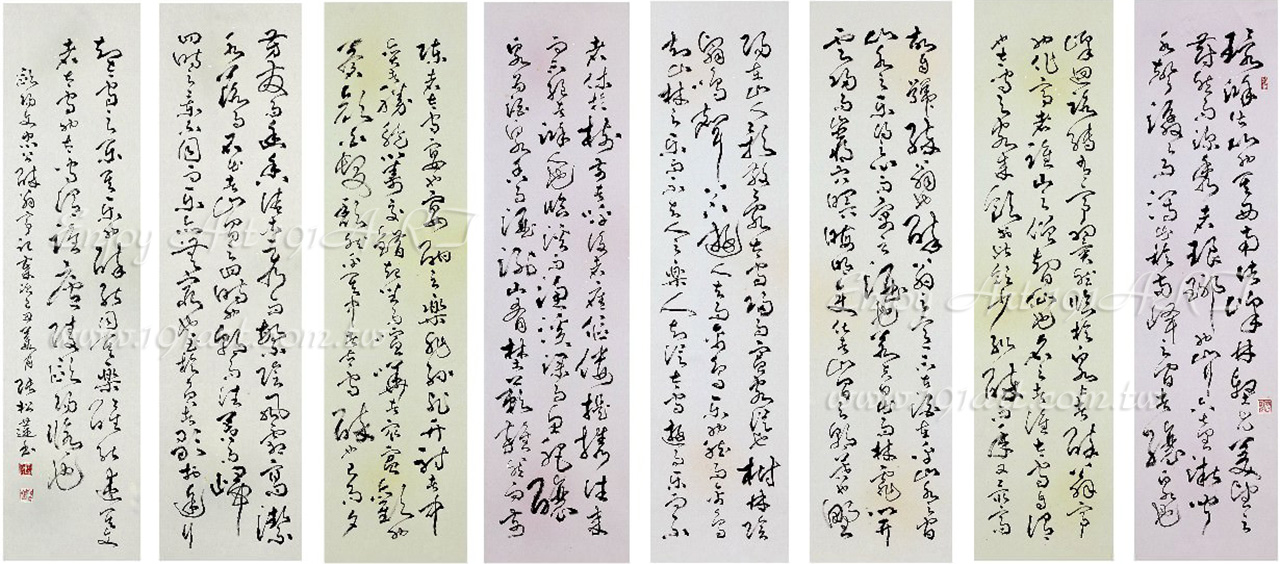 環滁皆山也其西南諸峰林壑尤美望之
蔚然而深秀者瑯琊也山行六七里漸聞
水聲潺潺而瀉出於兩峰之間者釀泉也
峰回路轉有亭翼然臨於泉上者醉翁亭
也作亭者誰山之僧智仙也名之者誰太守自謂
也太守與客來飲於此飲少輒醉而年又最高
故自號醉翁也醉翁之意不在酒在乎山水之間
也山水之樂得之心而寓之酒也若夫日出而林霏開
雲歸而巖穴暝晦明變化者山間之朝暮也野
陽在山人影散亂太守歸而賓客從也樹林陰
翳鳴聲上下遊人去而禽鳥樂也然而禽鳥
知山林之樂而不知人之樂人知從太守遊而樂而不
者休於樹前者呼後者應傴僂提攜往來
而不絕者滁人遊也臨溪而漁溪深而魚肥釀
泉為酒泉香而酒洌山肴野蔌雜然而前
陳者太守宴也宴酣之樂非絲非竹射者中
弈者勝觥籌交錯起坐而喧嘩者眾賓歡也
蒼顏白髮頹然乎其中者太守醉也已而夕
芳發而幽香佳木秀而繁陰風霜高潔
水落而石出者山間之四時也朝而往暮而歸
四時之景不同而樂亦無窮也至於負者歌於途行
知太守之樂其樂也醉能同其樂醒能述其文
者太守也太守謂誰廬陵歐陽修也
歐陽文忠公醉翁亭記歲次
張松蓮書
Enjoy Art 191ART
www.191art.com.tw
Enjoy Art 191ART
www.191art.com.tw